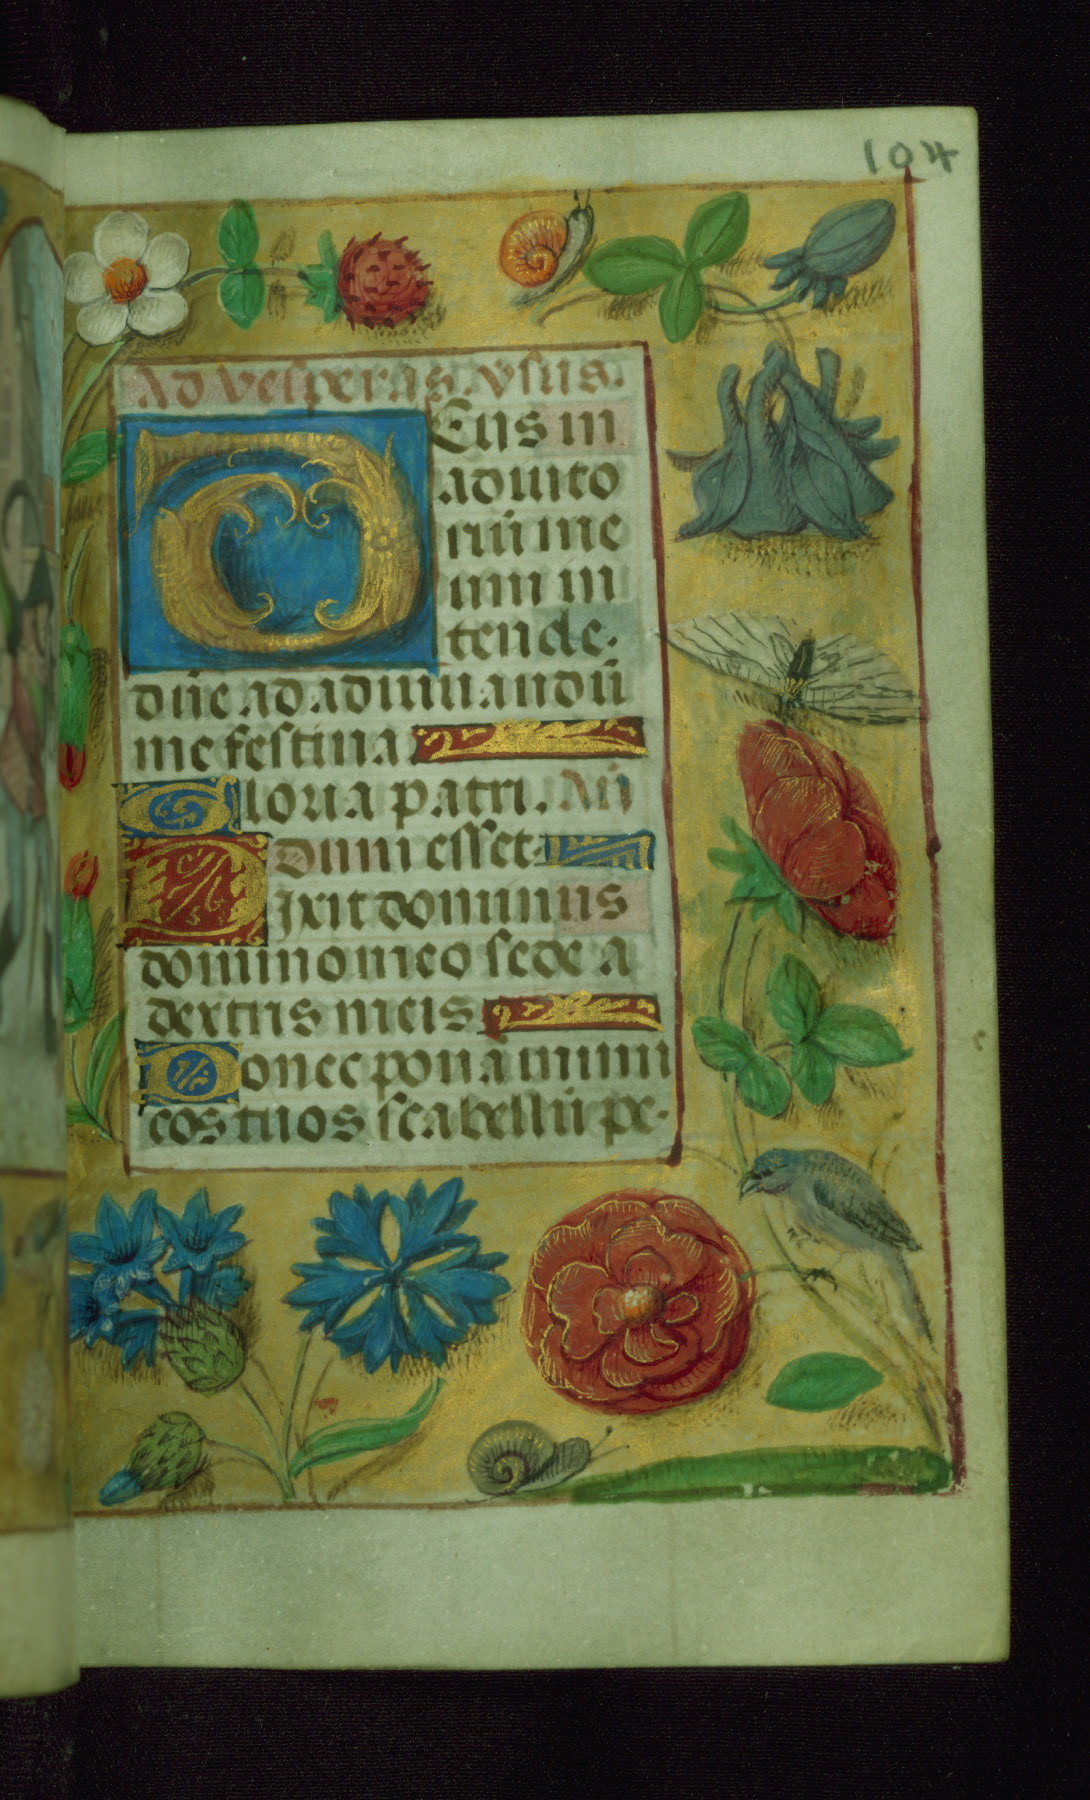 104
Ad vesperas. vsus.
Deus in
adiuto
riū me
um in
tende.
dn̄e ad adiuuandū
me festina
Gloria patri.
Ixit dominus
domino meo sede a
dextris meis
Donec ponam inimi
cos tuos scabellū pe-